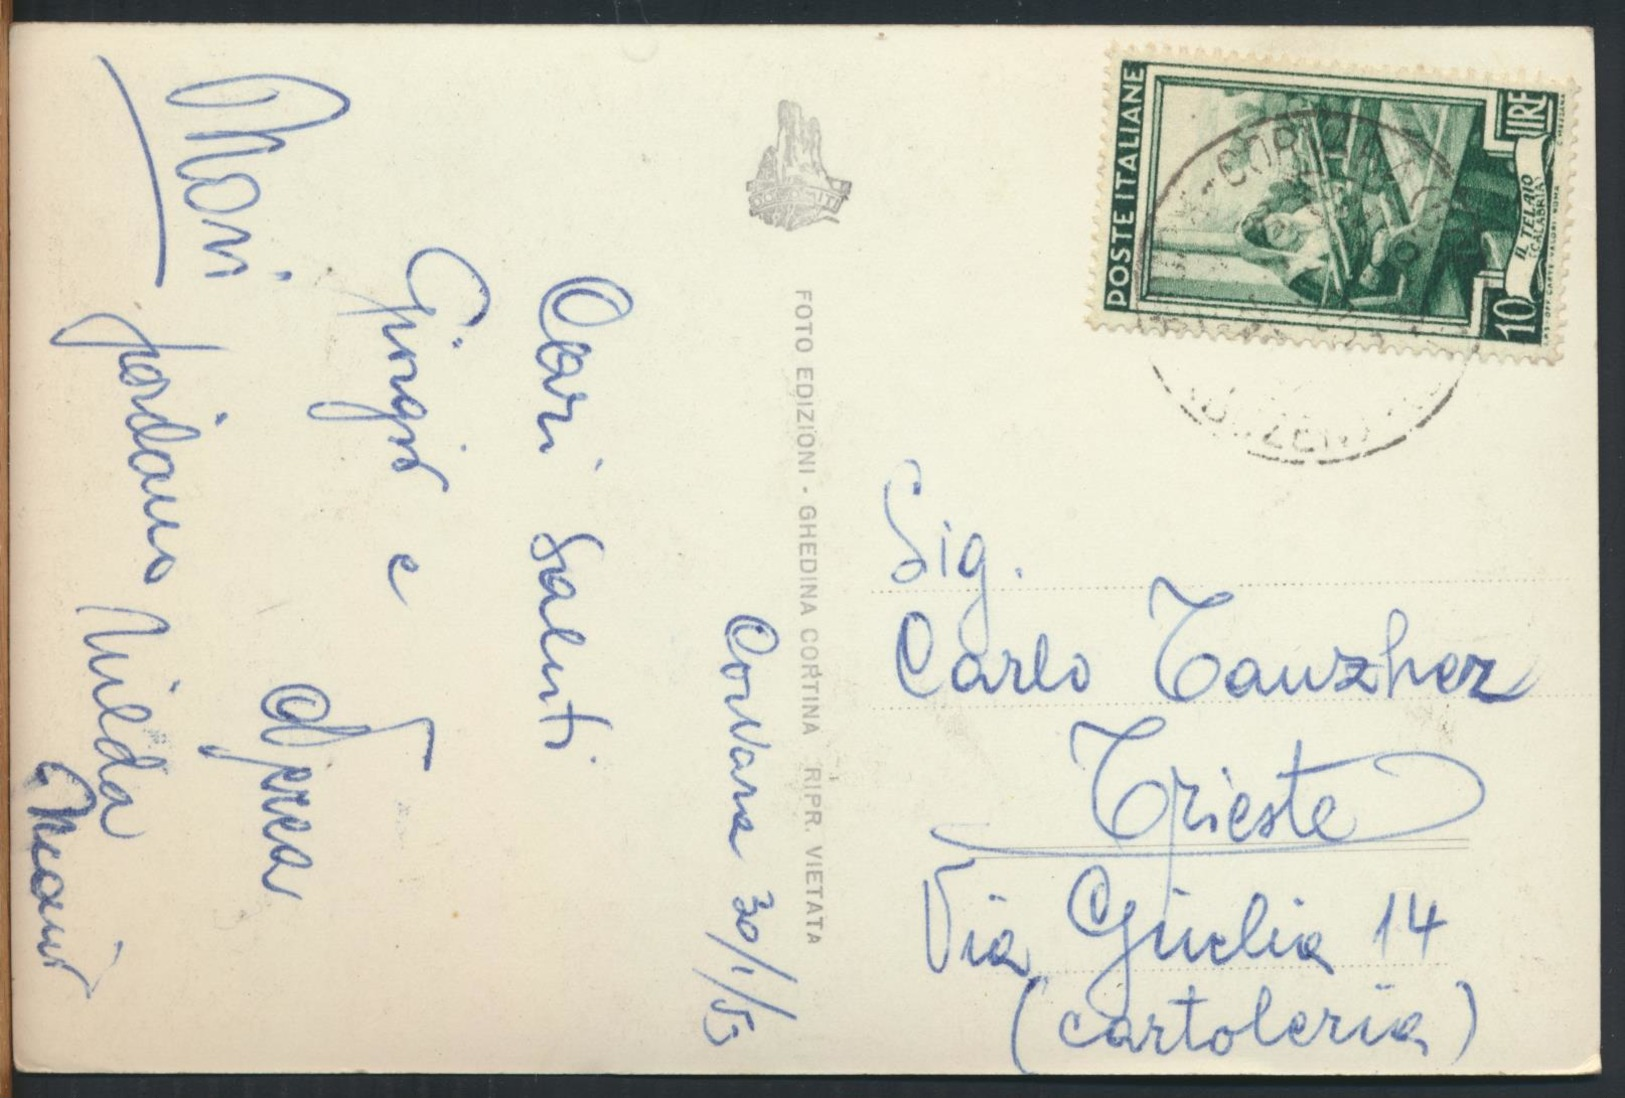 Corvara 30/1/53
Cari Saluti
Giorgio e
Mari
Giordano Nilda
FOTO EDIZIONI - GHEDINA CORTINA RIPR. VIETATA
POSTE ITALIANE
10 LIRE
IL TELAIO
(CALABRIA)
Sig.
Carlo Tanzher
Trieste
Via Giulia 14
(cartoleria)